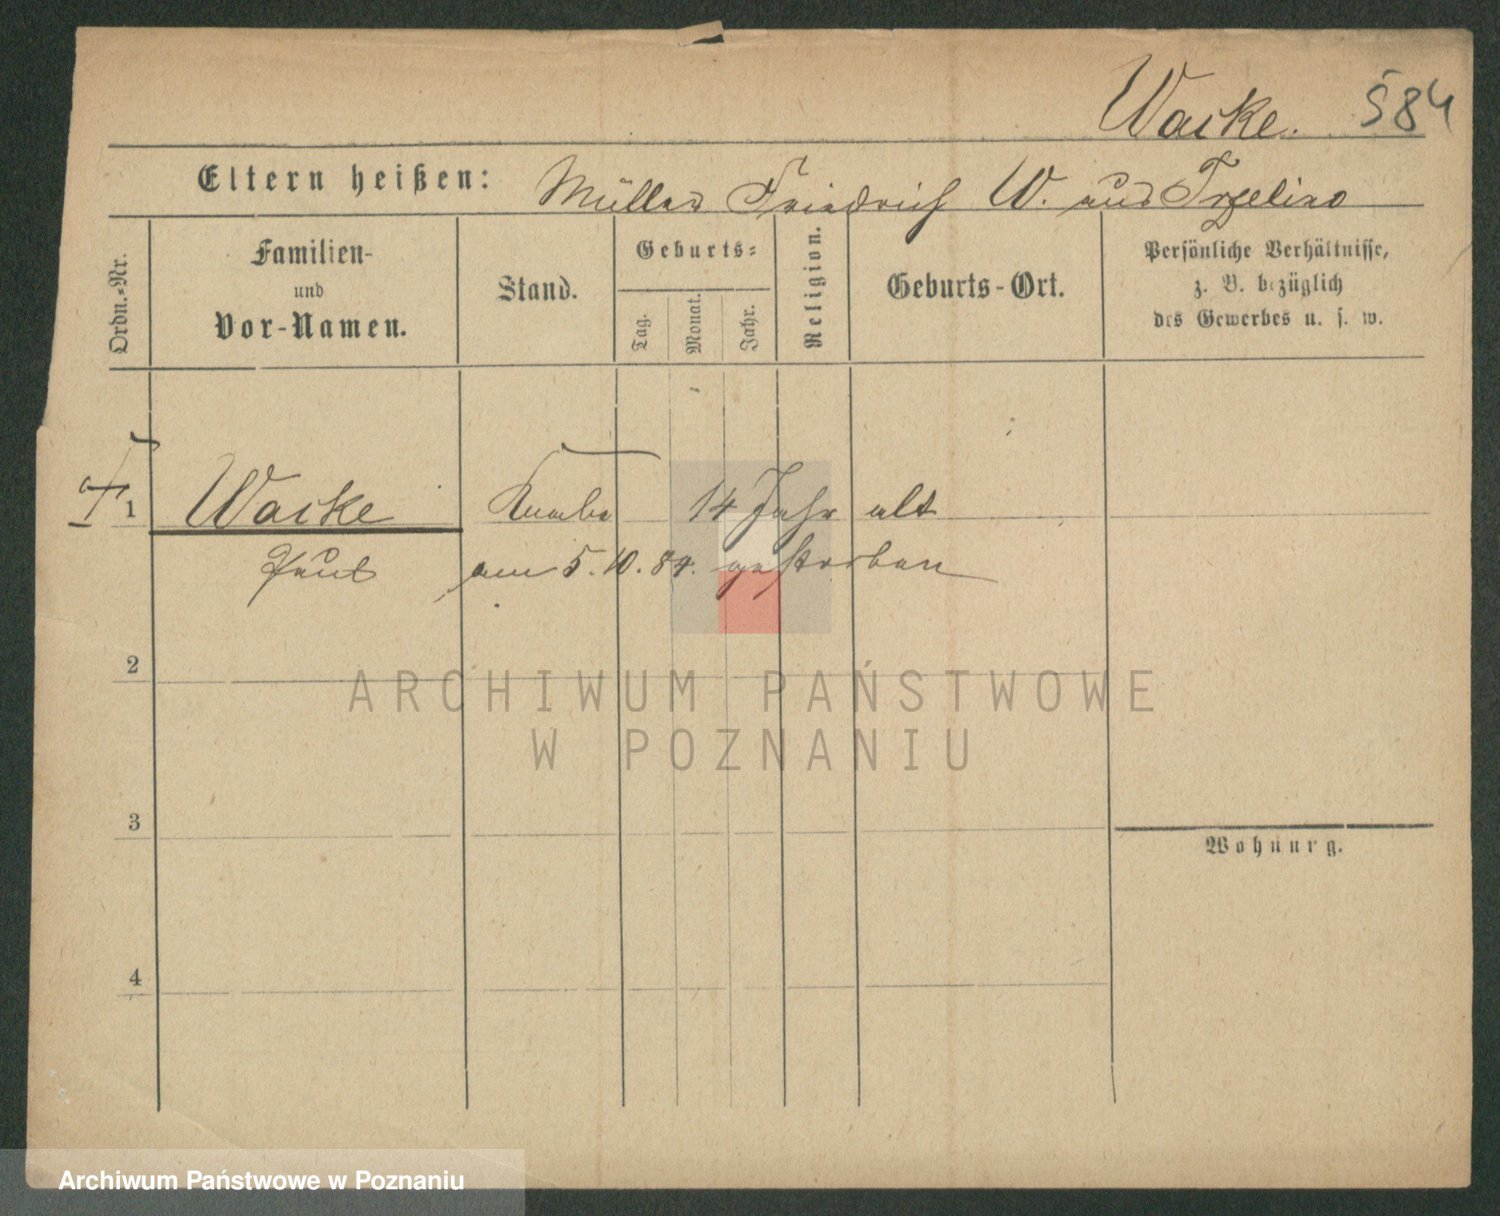 Wacke. 584
Eltern heißen: Müller Friedrich W. aus
Ordn.-Nr.
Familien-
und
Vor-Namen.
Stand.
Geburts-
Tag.
Monat.
Jahr.
Religion.
Geburts-Ort.
Persönliche Verhältnisse,
z. B. bezüglich
des Gewerbes u. s. w.
1 Wacke Knabe 14 Jahr alt
Paul am 5. 10. 84. gestorben
2
3
Wohnung.
4
ARCHIWUM PAŃSTWOWE
W POZNANIU
Archiwum Państwowe w Poznaniu